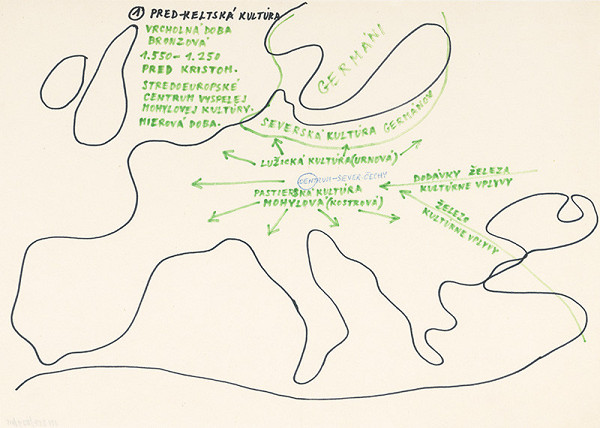 ① PRED-KELTSKÁ KULTÚRA
VRCHOLNÁ DOBA
BRONZOVÁ
1.550-1.250
PRED KRISTOM.
STREDOEUROPSKÉ
CENTRUM VYSPELEJ
MOHYLOVEJ KULTÚRY.
MIEROVÁ DOBA.
GERMÁNI
SEVERSKÁ KULTÚRA GERMÁNOV
LUŽICKÁ KULTÚRA (URNOVÁ)
CENTRUM-SEVER-ČECHY
PASTIERSKÁ KULTÚRA
MOHYLOVÁ (KOSTROVÁ)
DODÁVKY ŽELEZA
KULTÚRNE VPLYVY
ŽELEZO
KULTÚRNE VPLYVY